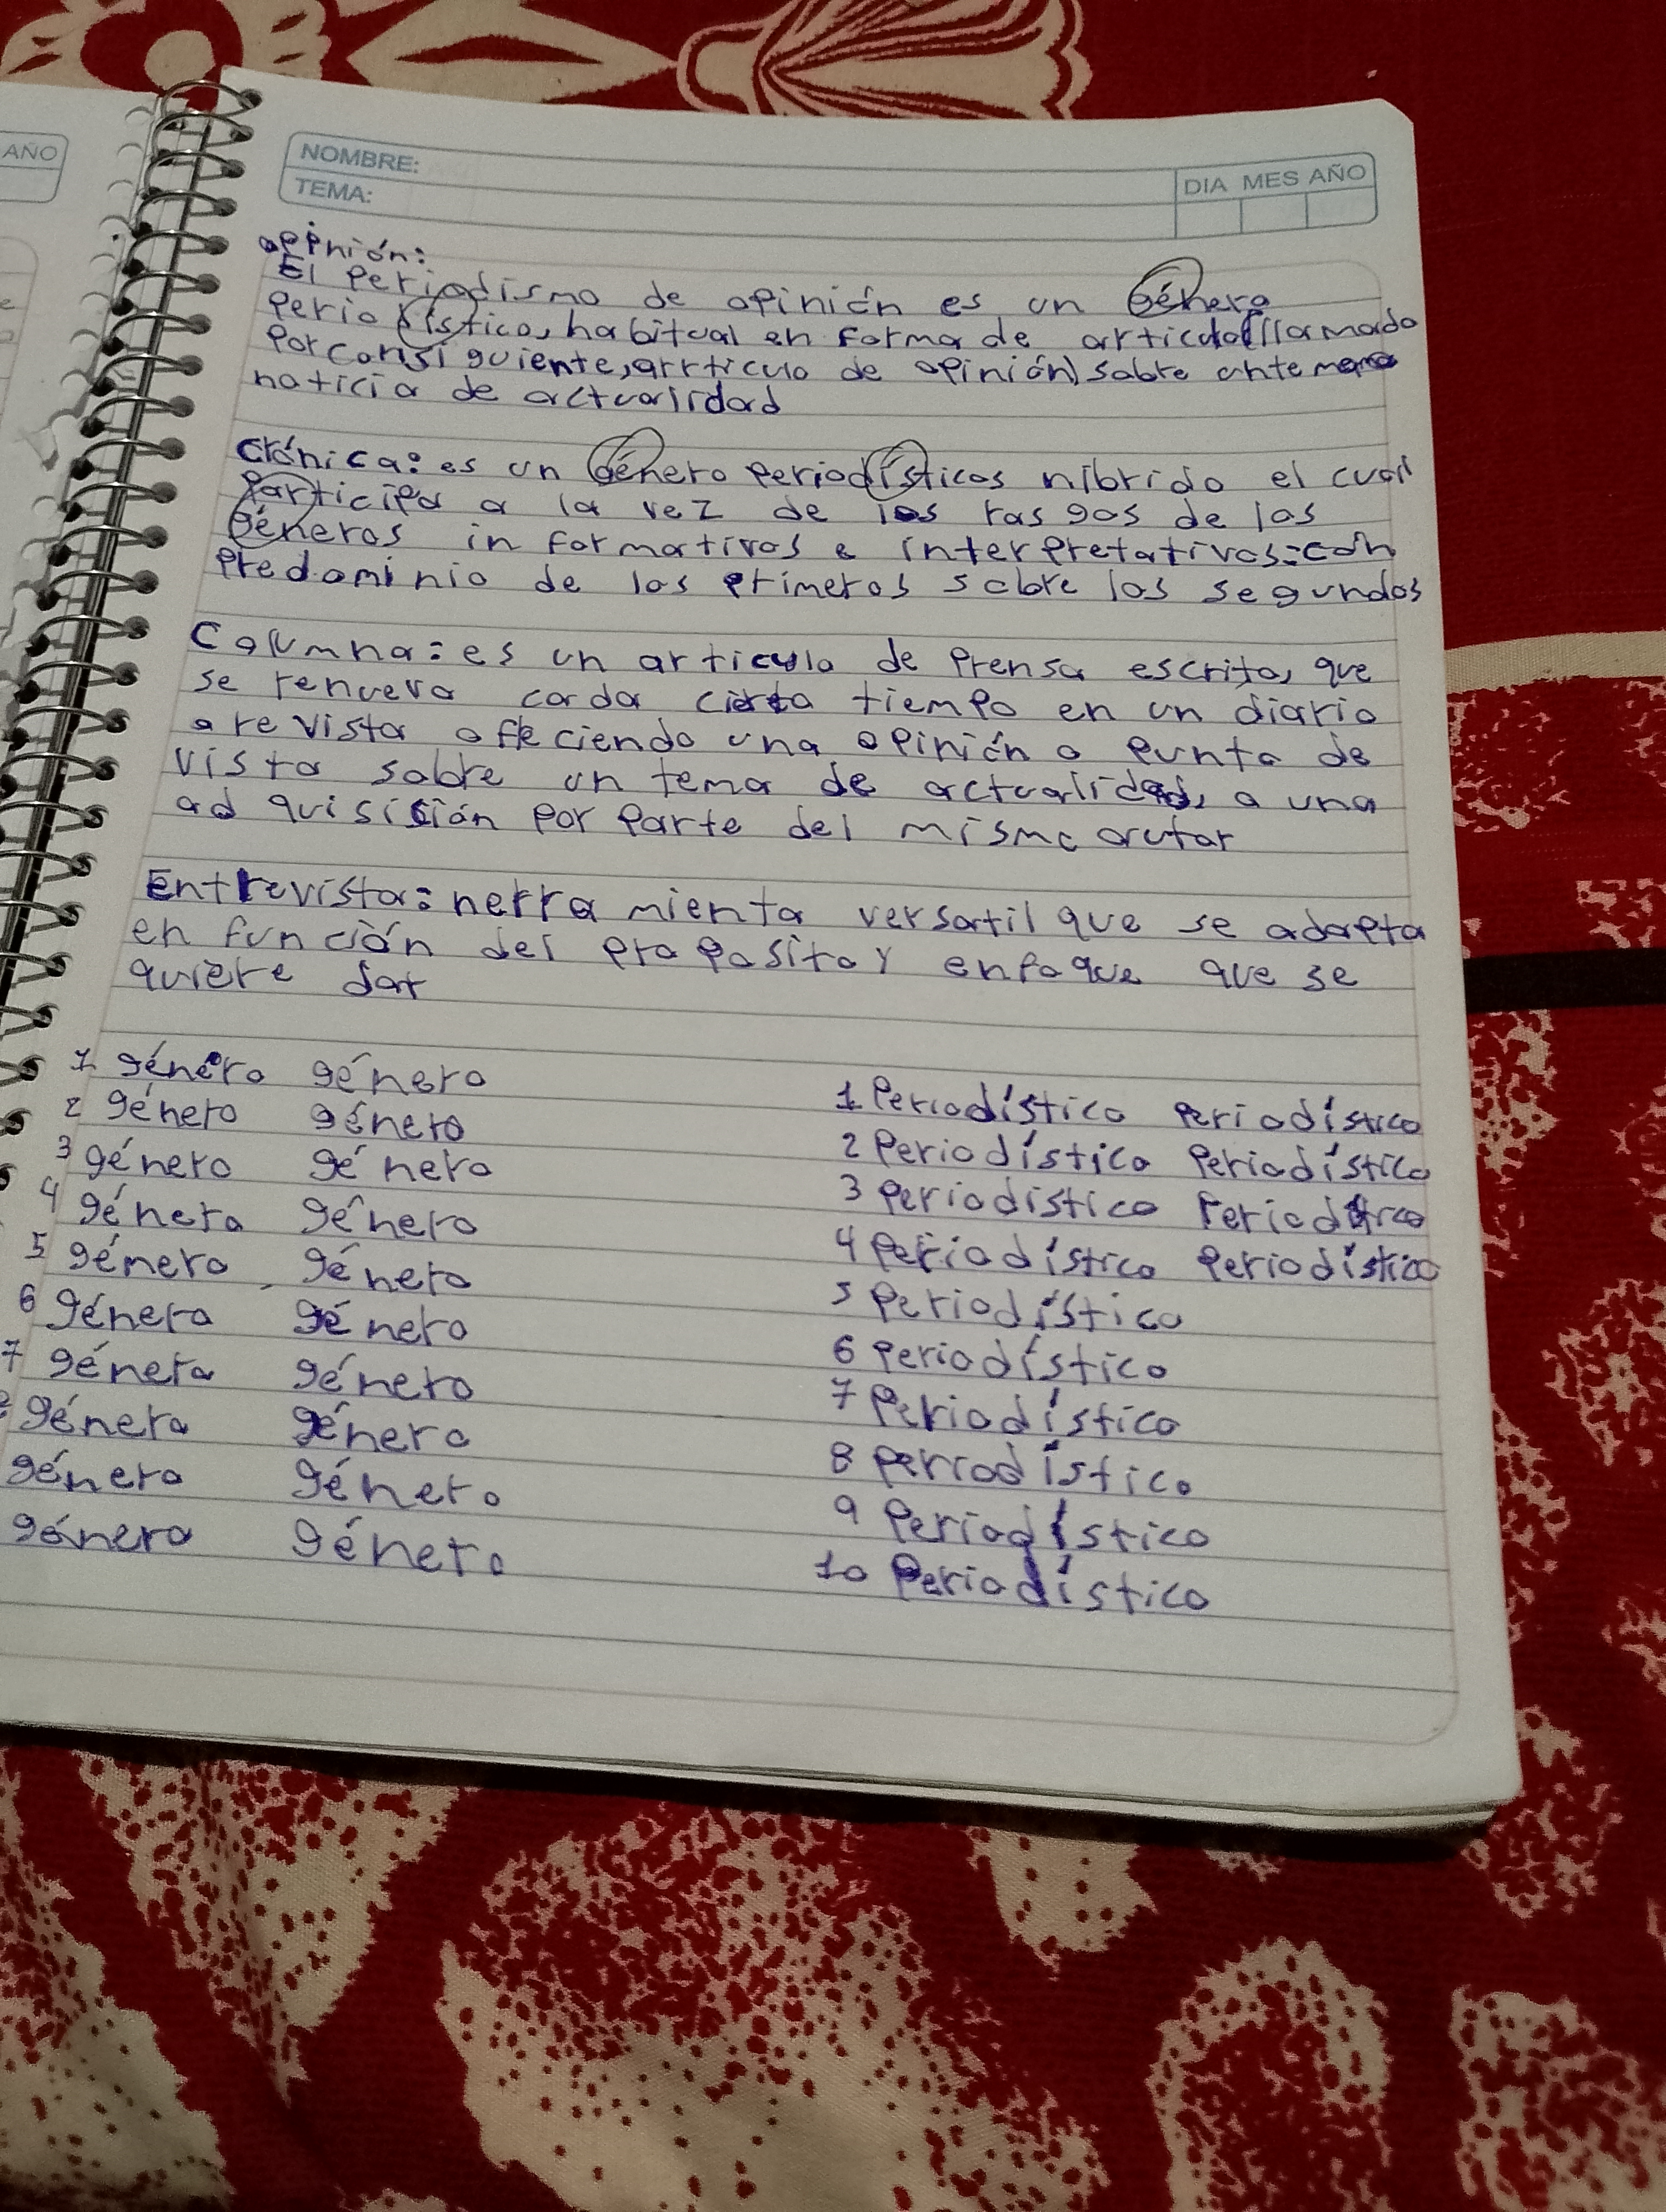 AÑO
NOMBRE:
TEMA:
DIA MES AÑO
opinión:
El periodismo de opinión es un género
periodístico, habitual en forma de articulo(llamado
por consiguiente, arrticulo de opinión) sobre un tema
noticia de actualidad
Crónica: es un género periodísticos níbrido el cual
participa a la vez de los rasgos de los
géneros informativos e interpretativos: con
predominio de los primeros sobre los segundos
Columna: es un articulo de prensa escrita, que
se renueva cada cierto tiempo en un diario
o revista ofreciendo una opinión o punto de
vista sobre un tema de actualidad, o una
adquisición por parte del mismo autor
Entrevista: herramienta versatil que se adapta
en función del proposito y enfoque que se
quiere dar
1 género género
2 género género
3 género género
4 género género
5 género género
6 género género
7 género género
género género
género género
género género
1 Periodístico periodístico
2 Periodístico Periodístico
3 periodistico
4 periodístico Periodístico
5 Periodístico
6 periodístico
7 Periodístico
8 periodístico
9 Periodístico
10 Periodístico